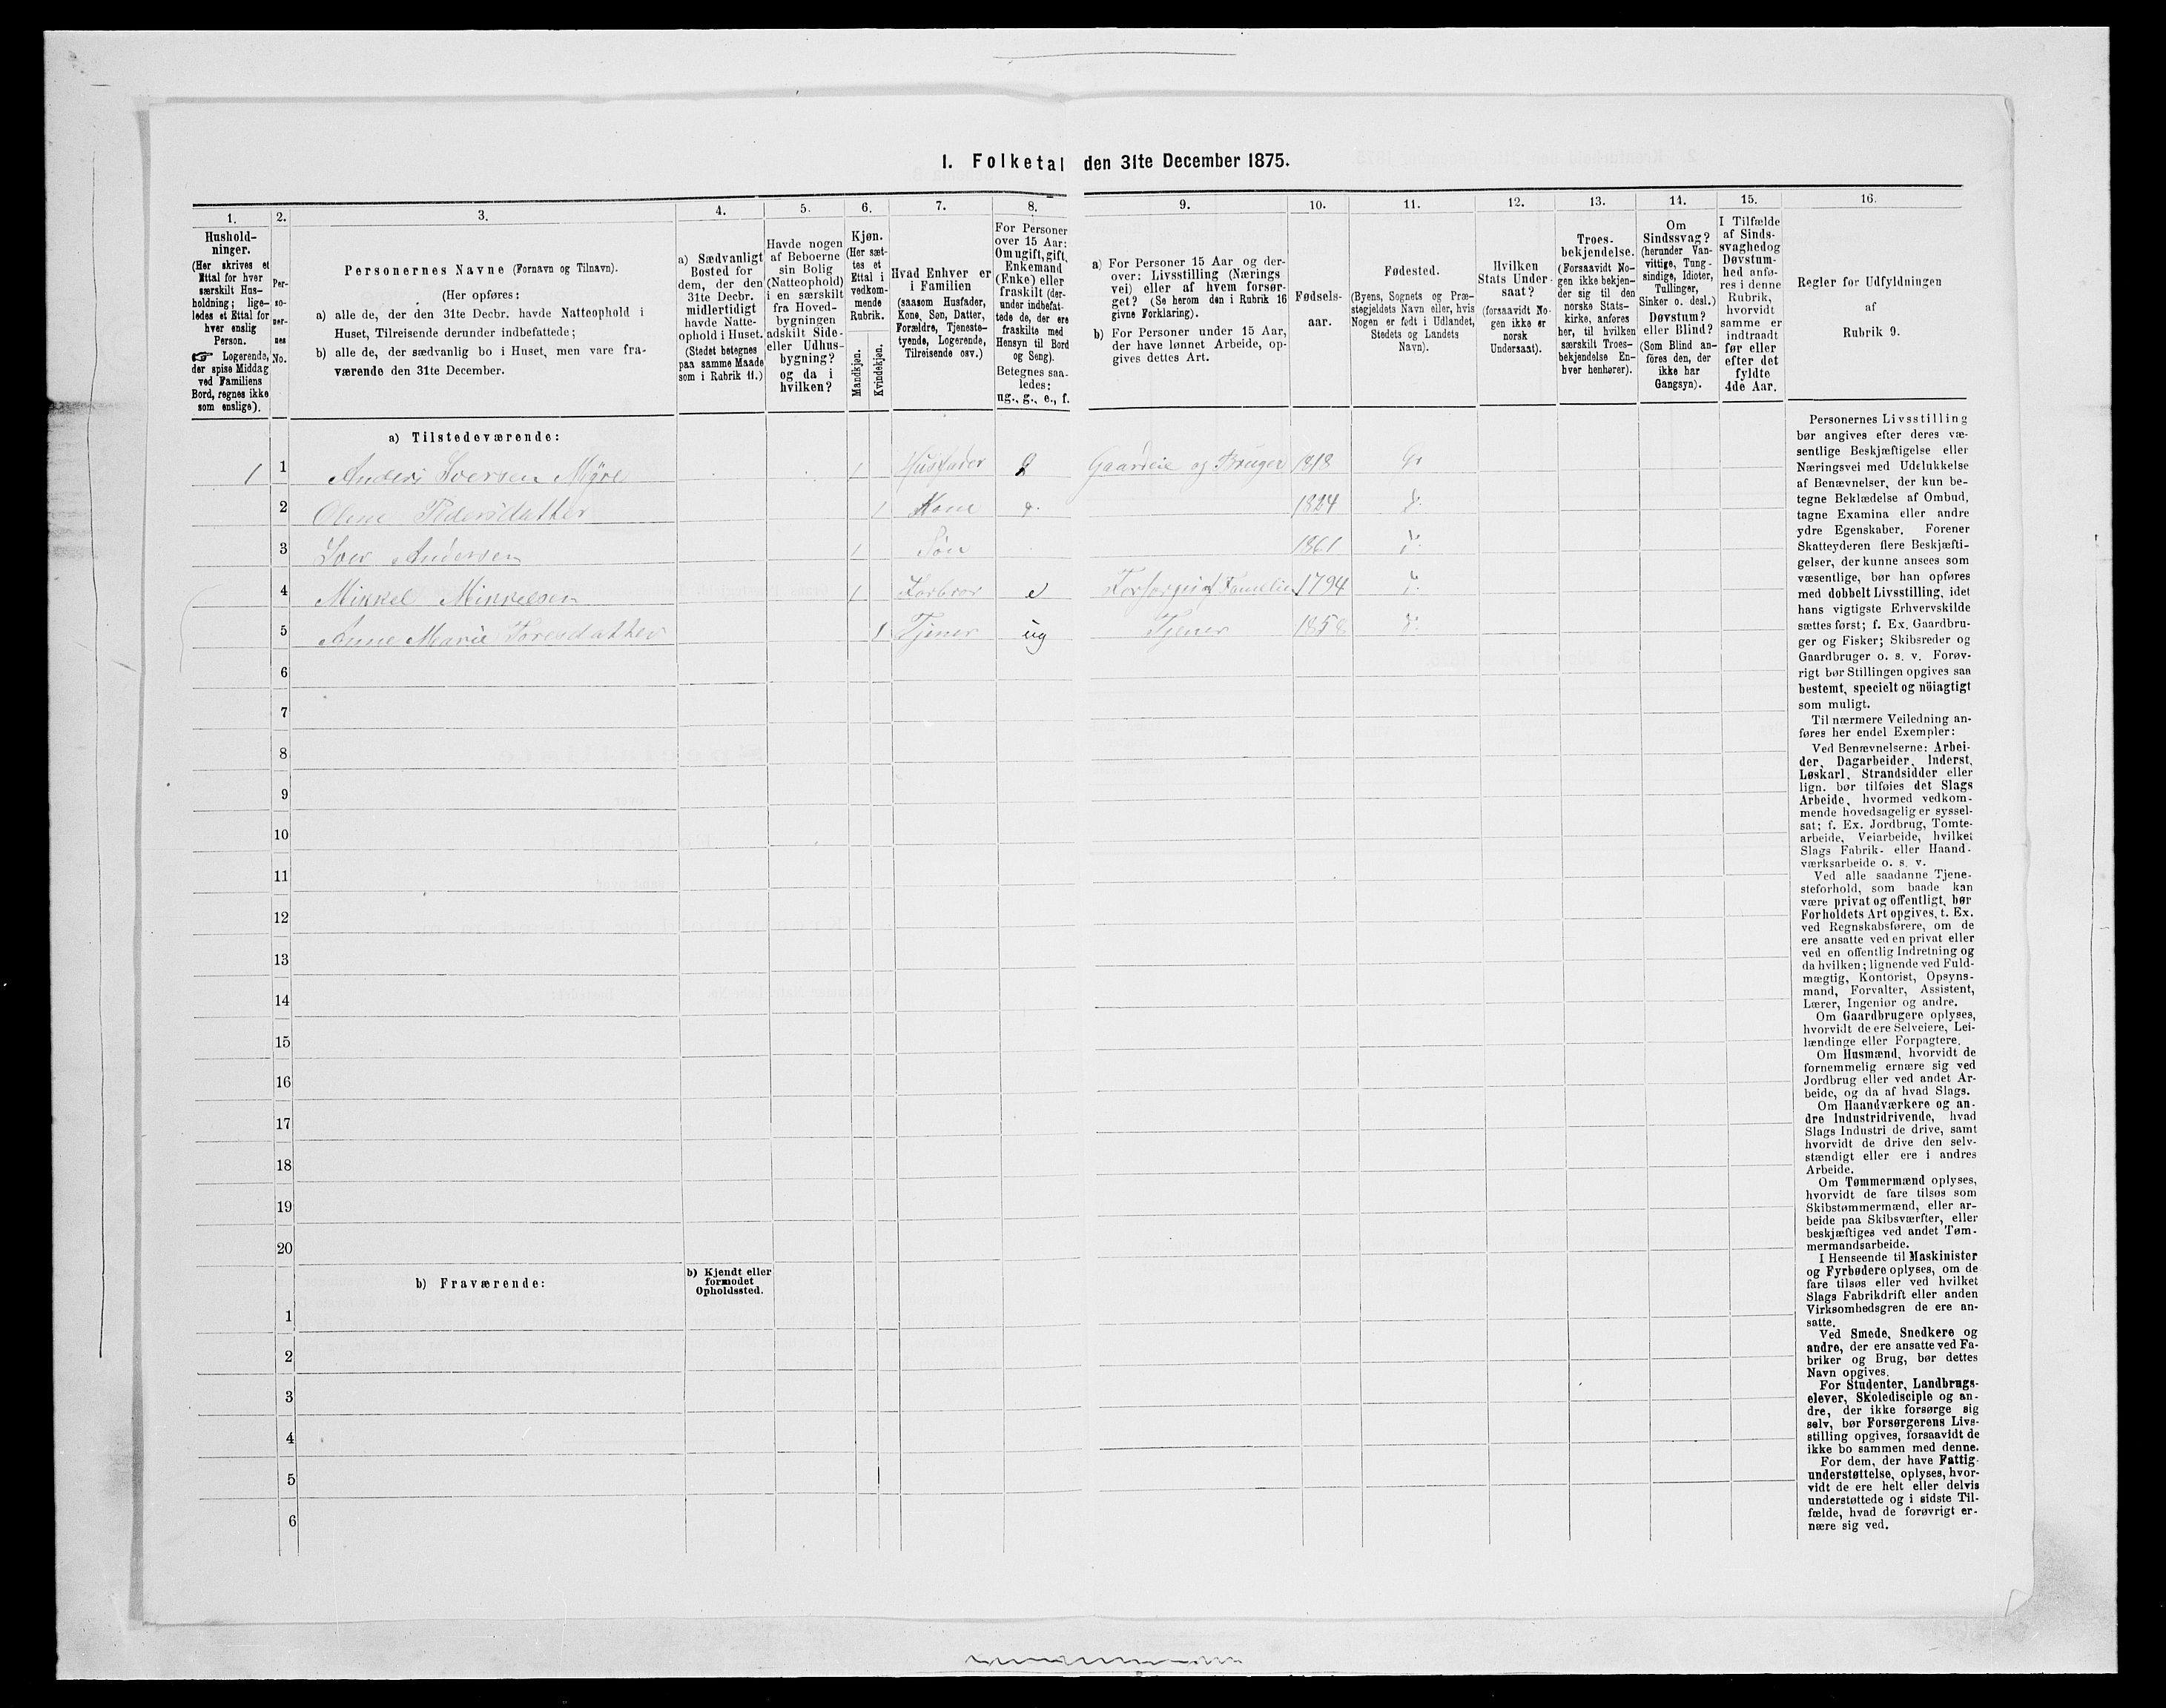 1. Folketal den 31te December 1875.
1. 2. 3. 4. 5. 6. 7. 8. 9. 10. 11. 12. 13. 14. 15. 16.
Hushold-
ninger.
(Her skrives et
Ettal for hver
særskilt Hus-
holdning; lige-
ledes et Ettal for
hver enslig
Person.
☞ Logerende,
der spise Middag
ved Familiens
Bord, regnes ikke
som enslige).
Per-
so-
ner-
nes
No.
Personernes Navne (Fornavn og Tilnavn).
(Her opføres:
a) alle de, der den 31te Decbr. havde Natteophold i
Huset, Tilreisende derunder indbefattede;
b) alle de, der sædvanlig bo i Huset, men vare fra-
værende den 31te December.
a) Sædvanligt
Bosted for
dem, der den
31te Decbr.
midlertidigt
havde Natte-
ophold i Huset.
(Stedet betegnes
paa samme Maade
som i Rubrik 11.)
Havde nogen
af Beboerne
sin Bolig
(Natteophold)
i en særskilt
fra Hoved-
bygningen
adskilt Side-
eller Udhus-
bygning?
og da i
hvilken?
Kjøn.
(Her sæt-
tes et
Ettal i
vedkom-
mende
Rubrik.
Mandkjøn.
Kvindekjøn.
Hvad Enhver er
i Familien
(saasom Husfader,
Kone, Søn, Datter,
Forældre, Tjeneste-
tyende, Logerende,
Tilreisende osv.)
For Personer
over 15 Aar:
Om ugift, gift,
Enkemand
(Enke) eller
fraskilt (der-
under indbefat-
tede de, der ere
fraskilte med
Hensyn til Bord
og Seng).
Betegnes saa-
ledes:
ug., g., e., f.
a) For Personer 15 Aar og der-
over: Livsstilling (Nærings
vei) eller af hvem forsør-
get? (Se herom den i Rubrik 16
givne Forklaring).
b) For Personer under 15 Aar,
der have lønnet Arbeide, op-
gives dettes Art.
Fødsels-
aar.
Fødested.
(Byens, Sognets og Præ-
stegjeldets Navn eller, hvis
Nogen er født i Udlandet,
Stedets og Landets
Navn).
Hvilken
Stats Under-
saat?
(forsaavidt No-
gen ikke er
norsk
Undersaat).
Troes-
bekjendelse.
(Forsaavidt No-
gen ikke bekjen-
der sig til den
norske Stats-
kirke, anføres
her, til hvilken
særskilt Troes-
bekjendelse En-
hver henhører).
Om
Sindssvag?
(herunder Van-
vittige, Tung-
sindige, Idioter,
Tullinger,
Sinker o. desl.)
Døvstum?
eller Blind?
(Som Blind an-
föres den, der
ikke har
Gangsyn).
I Tilfælde
af Sinds-
svaghed og
Døvstum-
hed anfø-
res i denne
Rubrik,
hvorvidt
samme er
indtraadt
før eller
efter det
fyldte
4de Aar.
Regler for Udfyldningen
af
Rubrik 9.
a) Tilstedeværende:
1 1 Anders Iversen Myre 1 Husfader g Gaardeie og Bruger 1818
2 Olene Pedersdatter 1 Kone g. 1824
3 Iver Andersen 1 Søn 1861
4 Mikkel Mikkelsen 1 e 1794
5 Anne Marie Toresdatter 1 Tjener ug Tjener 1858
6
7
8
9
10
11
12
13
14
15
16
17
18
19
20
b) Fraværende:
b) Kjendt eller
formodet
Opholdssted.
1
2
3
4
5
6
Personernes Livsstilling
bør angives efter deres væ-
sentlige Beskjæftigelse eller
Næringsvei med Udelukkelse
af Benævnelser, der kun be-
tegne Beklædelse af Ombud,
tagne Examina eller andre
ydre Egenskaber. Forener
Skatteyderen flere Beskjæfti-
gelser, der kunne ansees som
væsentlige, bør han opføres
med dobbelt Livsstilling, idet
hans vigtigste Erhvervskilde
sættes først; f. Ex. Gaardbru-
ger og Fisker; Skibsreder og
Gaardbruger o. s. v. Forøv-
rigt bør Stillingen opgives saa
bestemt, specielt og nöiagtigt
som muligt.
Til nærmere Veiledning an-
føres her endel Exempler:
Ved Benævnelserne: Arbei-
der, Dagarbeider, Inderst,
Løskarl, Strandsidder eller
lign. bør tilføies det Slags
Arbeide, hvormed vedkom-
mende hovedsagelig er syssel-
sat; f. Ex. Jordbrug, Tomte-
arbeide, Veiarbeide, hvilket
Slags Fabrik- eller Haand-
værksarbeide o. s. v.
Ved alle saadanne Tjene-
steforhold, som baade kan
være privat og offentligt, bør
Forholdets Art opgives, t. Ex.
ved Regnskabsførere, om de
ere ansatte ved en privat eller
ved en offentlig Indretning og
da hvilken; lignende ved Fuld-
mægtig, Kontorist, Opsyns-
mand, Forvalter, Assistent,
Lærer, Ingeniør og andre.
Om Gaardbrugere oplyses,
hvorvidt de ere Selveiere, Lei-
lændinge eller Forpagtere.
Om Husmænd, hvorvidt de
fornemmelig ernære sig ved
Jordbrug eller ved andet Ar-
beide, og da af hvad Slags.
Om Haandværkere og an-
dre Industridrivende, hvad
Slags Industri de drive, samt
hvorvidt de drive den selv-
stændigt eller ere i andres
Arbeide.
Om Tømmermænd oplyses,
hvorvidt de fare tilsøs som
Skibstømmermænd, eller ar-
beide paa Skibsværfter, eller
beskjæftiges ved andet Tøm-
mermandsarbeide.
I Henseende til Maskinister
og Fyrbødere oplyses, om de
fare tilsøs eller ved hvilket
Slags Fabrikdrift eller anden
Virksomhedsgren de ere an-
satte.
Ved Smede, Snedkere og
andre, der ere ansatte ved Fa-
briker og Brug, bør dettes
Navn opgives.
For Studenter, Landbrugs-
elever, Skoledisciple og an-
dre, der ikke forsørge sig
selv, bør Forsørgerens Livs-
stilling opgives, forsaavidt de
ikke bo sammen med denne.
For dem, der have Fattig-
understøttelse, oplyses, hvor-
vidt de ere helt eller delvis
understøttede og i sidste Til-
fælde, hvad de forøvrigt er-
nære sig ved.